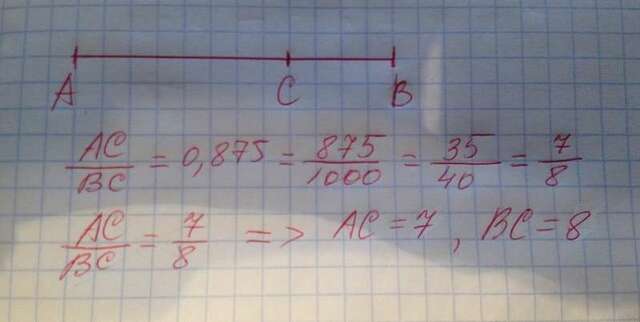 A C B
AC/BC = 0,875 = 875/1000 = 35/40 = 7/8
AC/BC = 7/8 => AC = 7, BC = 8